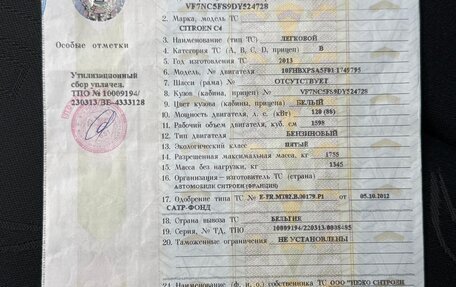 VF7NC5FS9DY524728
2. Марка, модель ТС
CITROEN C4
Особые отметки
3. Наименование (тип ТС) ЛЕГКОВОЙ
4. Категория ТС (A, B, C, D, прицеп) B
5. Год изготовления ТС 2013
Утилизационный
сбор уплачен.
ТПО № 10009194/
230313/ВЕ-4333128
6. Модель, № двигателя 10FHBXPSA5F01 1749795
7. Шасси (рама) № ОТСУТСТВУЕТ
8. Кузов (кабина, прицеп) № VF7NC5FS9DY524728
9. Цвет кузова (кабины, прицепа) БЕЛЫЙ
10. Мощность двигателя, л. с. (кВт) 120 (88)
11. Рабочий объем двигателя, куб. см 1598
12. Тип двигателя БЕНЗИНОВЫЙ
13. Экологический класс ПЯТЫЙ
14. Разрешенная максимальная масса, кг 1755
15. Масса без нагрузки, кг 1345
16. Организация – изготовитель ТС (страна)
АВТОМОБИЛИ СИТРОЕН (ФРАНЦИЯ)
17. Одобрение типа ТС № E-FR.MT02.B.00179.P1 от 05.10.2012
САТР-ФОНД
18. Страна вывоза ТС БЕЛЬГИЯ
19. Серия, № ТД, ТПО 10009194/220313/0003495
20. Таможенные ограничения НЕ УСТАНОВЛЕНЫ
21. Наименование (ф. и. о.) собственника ТС ООО "ПЕЖО СИТРОЕН